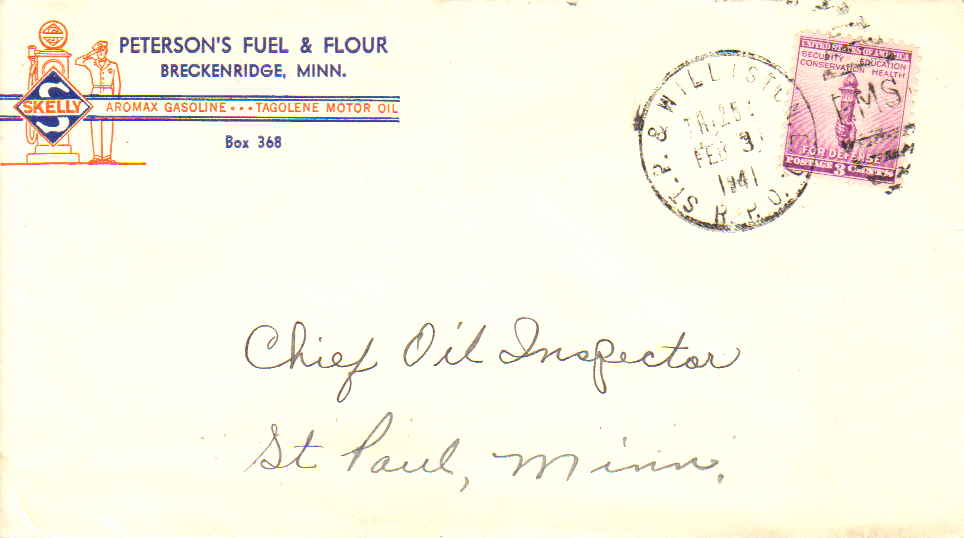 PETERSON'S FUEL & FLOUR
BRECKENRIDGE, MINN.
S
SKELLY
AROMAX GASOLINE ··· TAGOLENE MOTOR OIL
Box 368
ST. P. & WILLISTON
FEB 3
1941
R.P.O.
RMS
UNITED STATES OF AMERICA
SECURITY EDUCATION
CONSERVATION HEALTH
FOR DEFENSE
POSTAGE 3 CENTS
Chief Oil Inspector
St Paul, Minn.